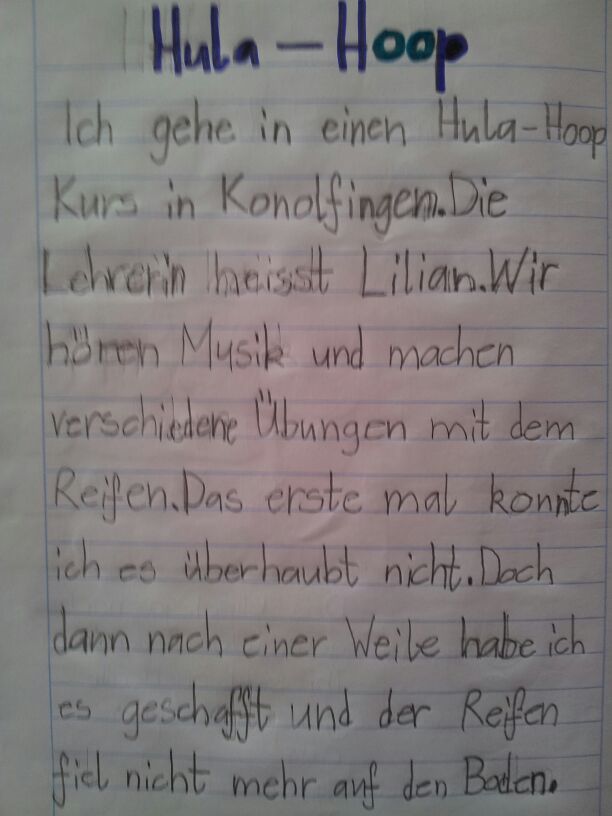 Hula - Hoop
Ich gehe in einen Hula-Hoop
Kurs in Konolfingen.Die
Lehrerin heisst Lilian.Wir
hören Musik und machen
verschiedene Übungen mit dem
Reifen.Das erste mal konnte
ich es überhaubt nicht.Doch
dann nach einer Weile habe ich
es geschafft und der Reifen
fiel nicht mehr auf den Boden.